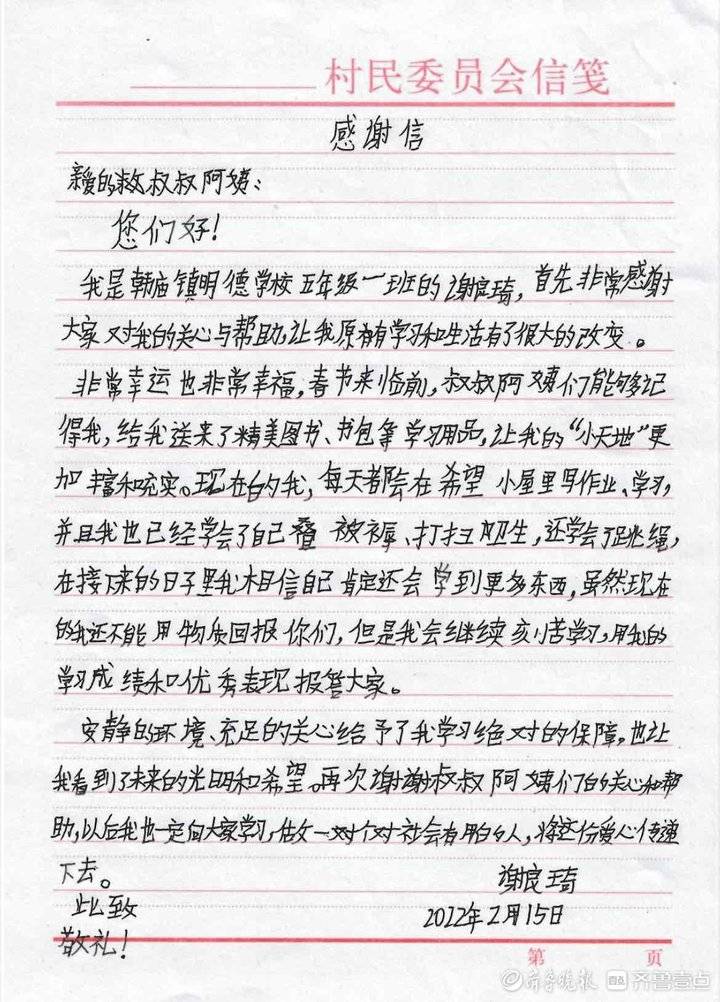 村民委员会信笺
感谢信
亲爱的叔叔阿姨：
您们好！
我是韩庙镇明德学校五年级一班的谢良琦，首先非常感谢
大家对我的关心与帮助，让我原有学习和生活有了很大的改变。
非常幸运也非常幸福，春节来临前，叔叔阿姨们能够记
得我，给我送来了精美图书、书包等学习用品，让我的“小天地”更
加丰富和充实。现在的我，每天都会在希望小屋里写作业、学习，
并且我也已经学会了自己叠被褥、打扫卫生，还学会了跳绳，
在接下来的日子里我相信自己肯定还会学到更多东西，虽然现在
的我还不能用物质回报你们，但是我会继续刻苦学习，用我的
学习成绩和优秀表现报答大家。
安静的环境、充足的关心给予了我学习绝对的保障，也让
我看到了未来的光明和希望。再次谢谢叔叔阿姨们的关心和帮
助，以后我也一定向大家学习，做一对个对社会有用的人，将这份爱心传递
下去。
谢良琦
此致
2022年2月15日
敬礼！
第 页
齐鲁晚报 齐鲁壹点